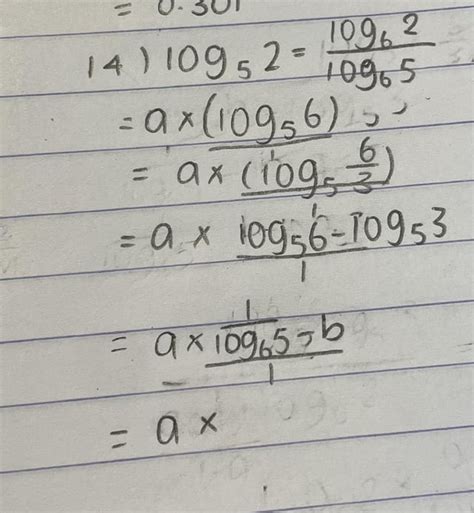 = 0.301
14) log₅2 = log₆2 / log₆5
= a × (log₅6)
= a × (log₅ 6/3) / 1
= a × log₅6 - log₅3 / 1
= a × 1/log₆5 - b / 1
= a ×